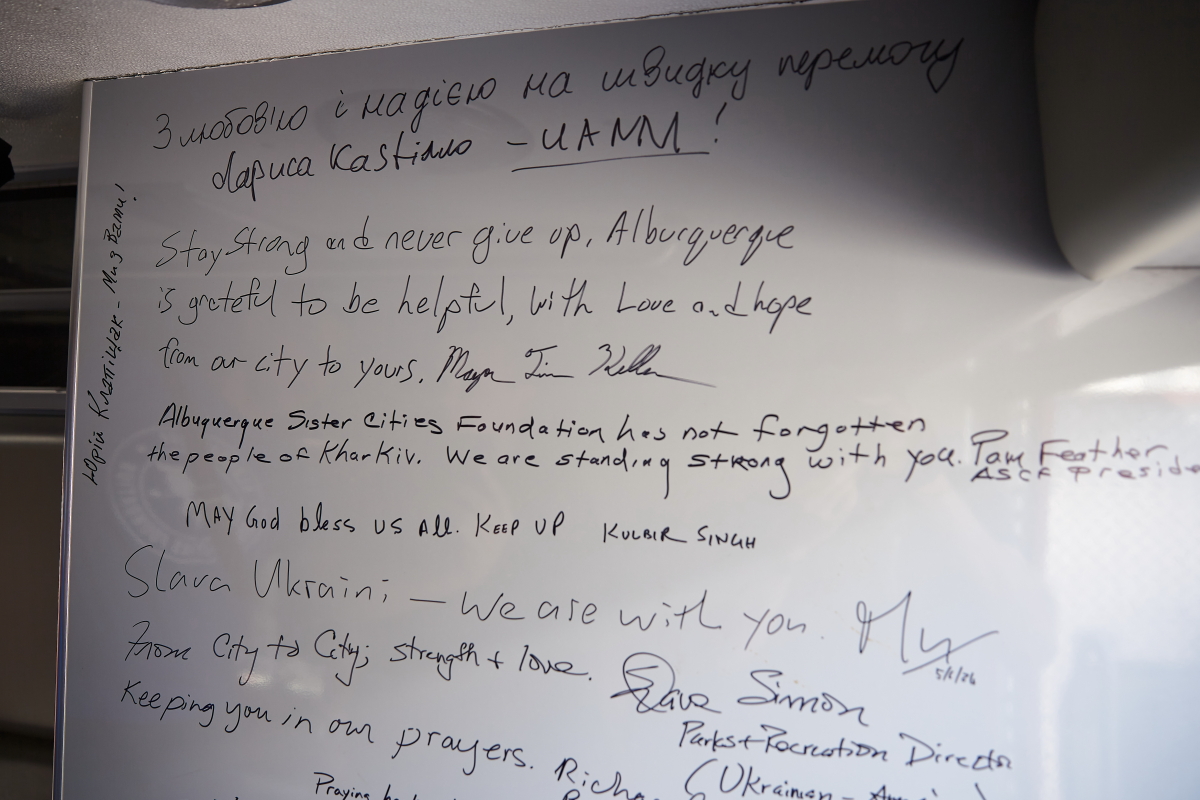 З любов'ю і надією на швидку перемогу
Лариса Kastillo – UANM!
Юрій Клапіщак - Ми з Вами!
Stay Strong and never give up, Alburquerque
is grateful to be helpful, with Love and hope
from our city to yours. Mayor Tim Keller
Albuquerque Sister Cities Foundation has not forgotten
the people of Kharkiv. We are standing strong with you. Pam Feather
ASCF Preside
MAY God bless us All. KEEP UP KULBIR SINGH
Slava Ukraini – We are with you.
5/5/26
From City to City; strength + love. Dave Simon
Parks + Recreation Director
Keeping you in our prayers. Richa
(Ukrainian - Am
Praying